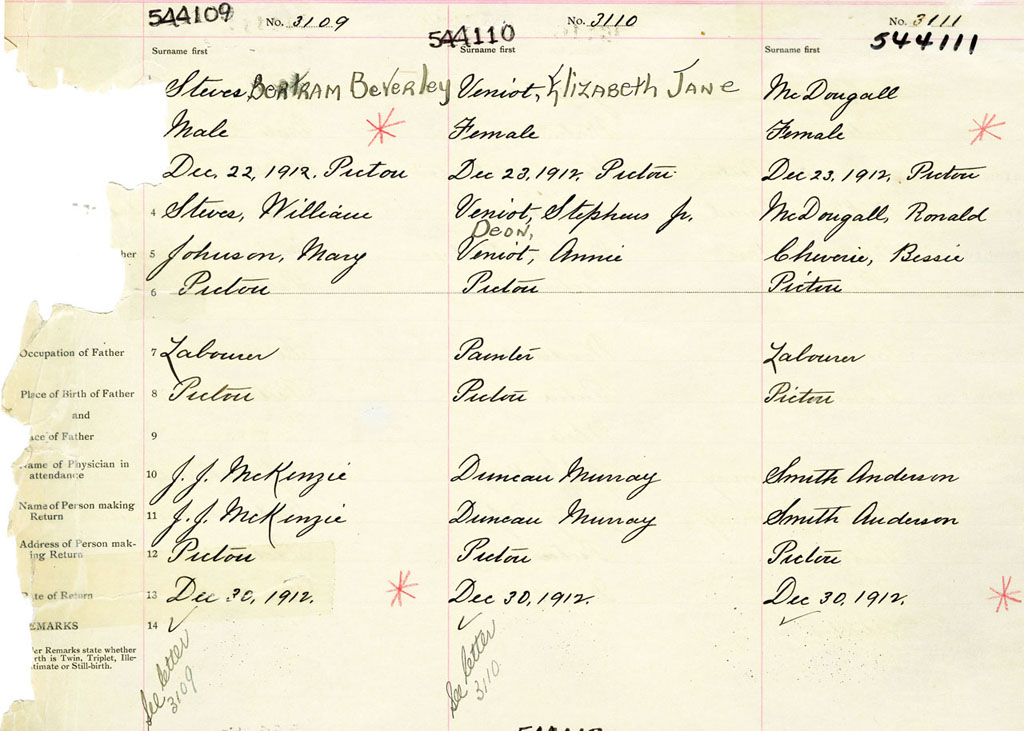 544109 No. 3109 544110 No. 3110 No. 3111 544111
Surname first Surname first Surname first
Steves, Bertram Beverley Veniot, Elizabeth Jane McDougall
Male Female Female
Dec. 22, 1912. Pictou Dec 23, 1912, Pictou Dec 23, 1912, Pictou
4 Steves, William Veniot, Stephens Jr. McDougall, Ronald
Deon,
5 Johnson, Mary Veniot, Annie Cheverie, Bessie
6 Pictou Pictou Pictou
Occupation of Father 7 Labourer Painter Labourer
Place of Birth of Father 8 Pictou Pictou Pictou
and
ace of Father 9
Name of Physician in
attendance 10 J. J. McKenzie Duncan Murray Smith Anderson
Name of Person making
Return 11 J. J. McKenzie Duncan Murray Smith Anderson
Address of Person mak-
ing Return 12 Pictou Pictou Pictou
Date of Return 13 Dec 30, 1912. Dec 30, 1912. Dec 30, 1912.
EMARKS 14
er Remarks state whether
rth is Twin, Triplet, Ille-
timate or Still-birth.
See letter
3109
See letter
3110